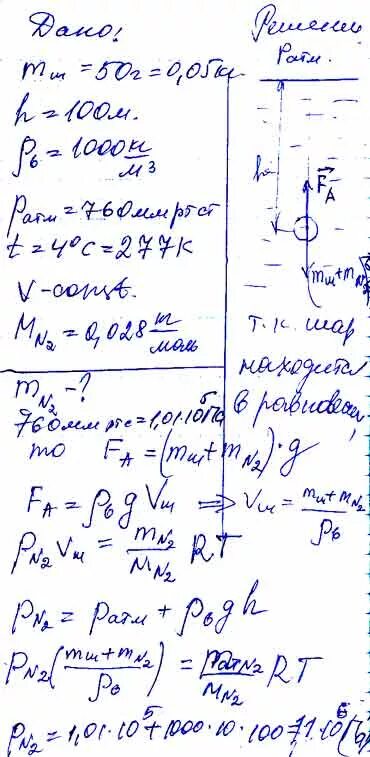 Дано:
m_ш = 50г = 0,05кг
h = 100м.
ρ_в = 1000 кг/м³
P_атм = 760 мм рт ст
t = 4°C = 277K
V – const.
M_N₂ = 0,028 кг/моль
m_N₂ – ?
760мм ртс = 1,01·10⁵Па
Решение
P_атм.
h
F_A
m_ш + m_N₂
т.к. шар
находится
в равновесии,
то F_A = (m_ш + m_N₂)·g
F_A = ρ_в g V_ш ⇒ V_ш = (m_ш + m_N₂)/ρ_в
P_N₂ V_ш = m_N₂/M_N₂ RT
P_N₂ = P_атм + ρ_в g h
P_N₂ ((m_ш + m_N₂)/ρ_в) = m_N₂/M_N₂ RT
P_N₂ = 1,01·10⁵ + 1000·10·100 = 1,1·10⁶ (Па)